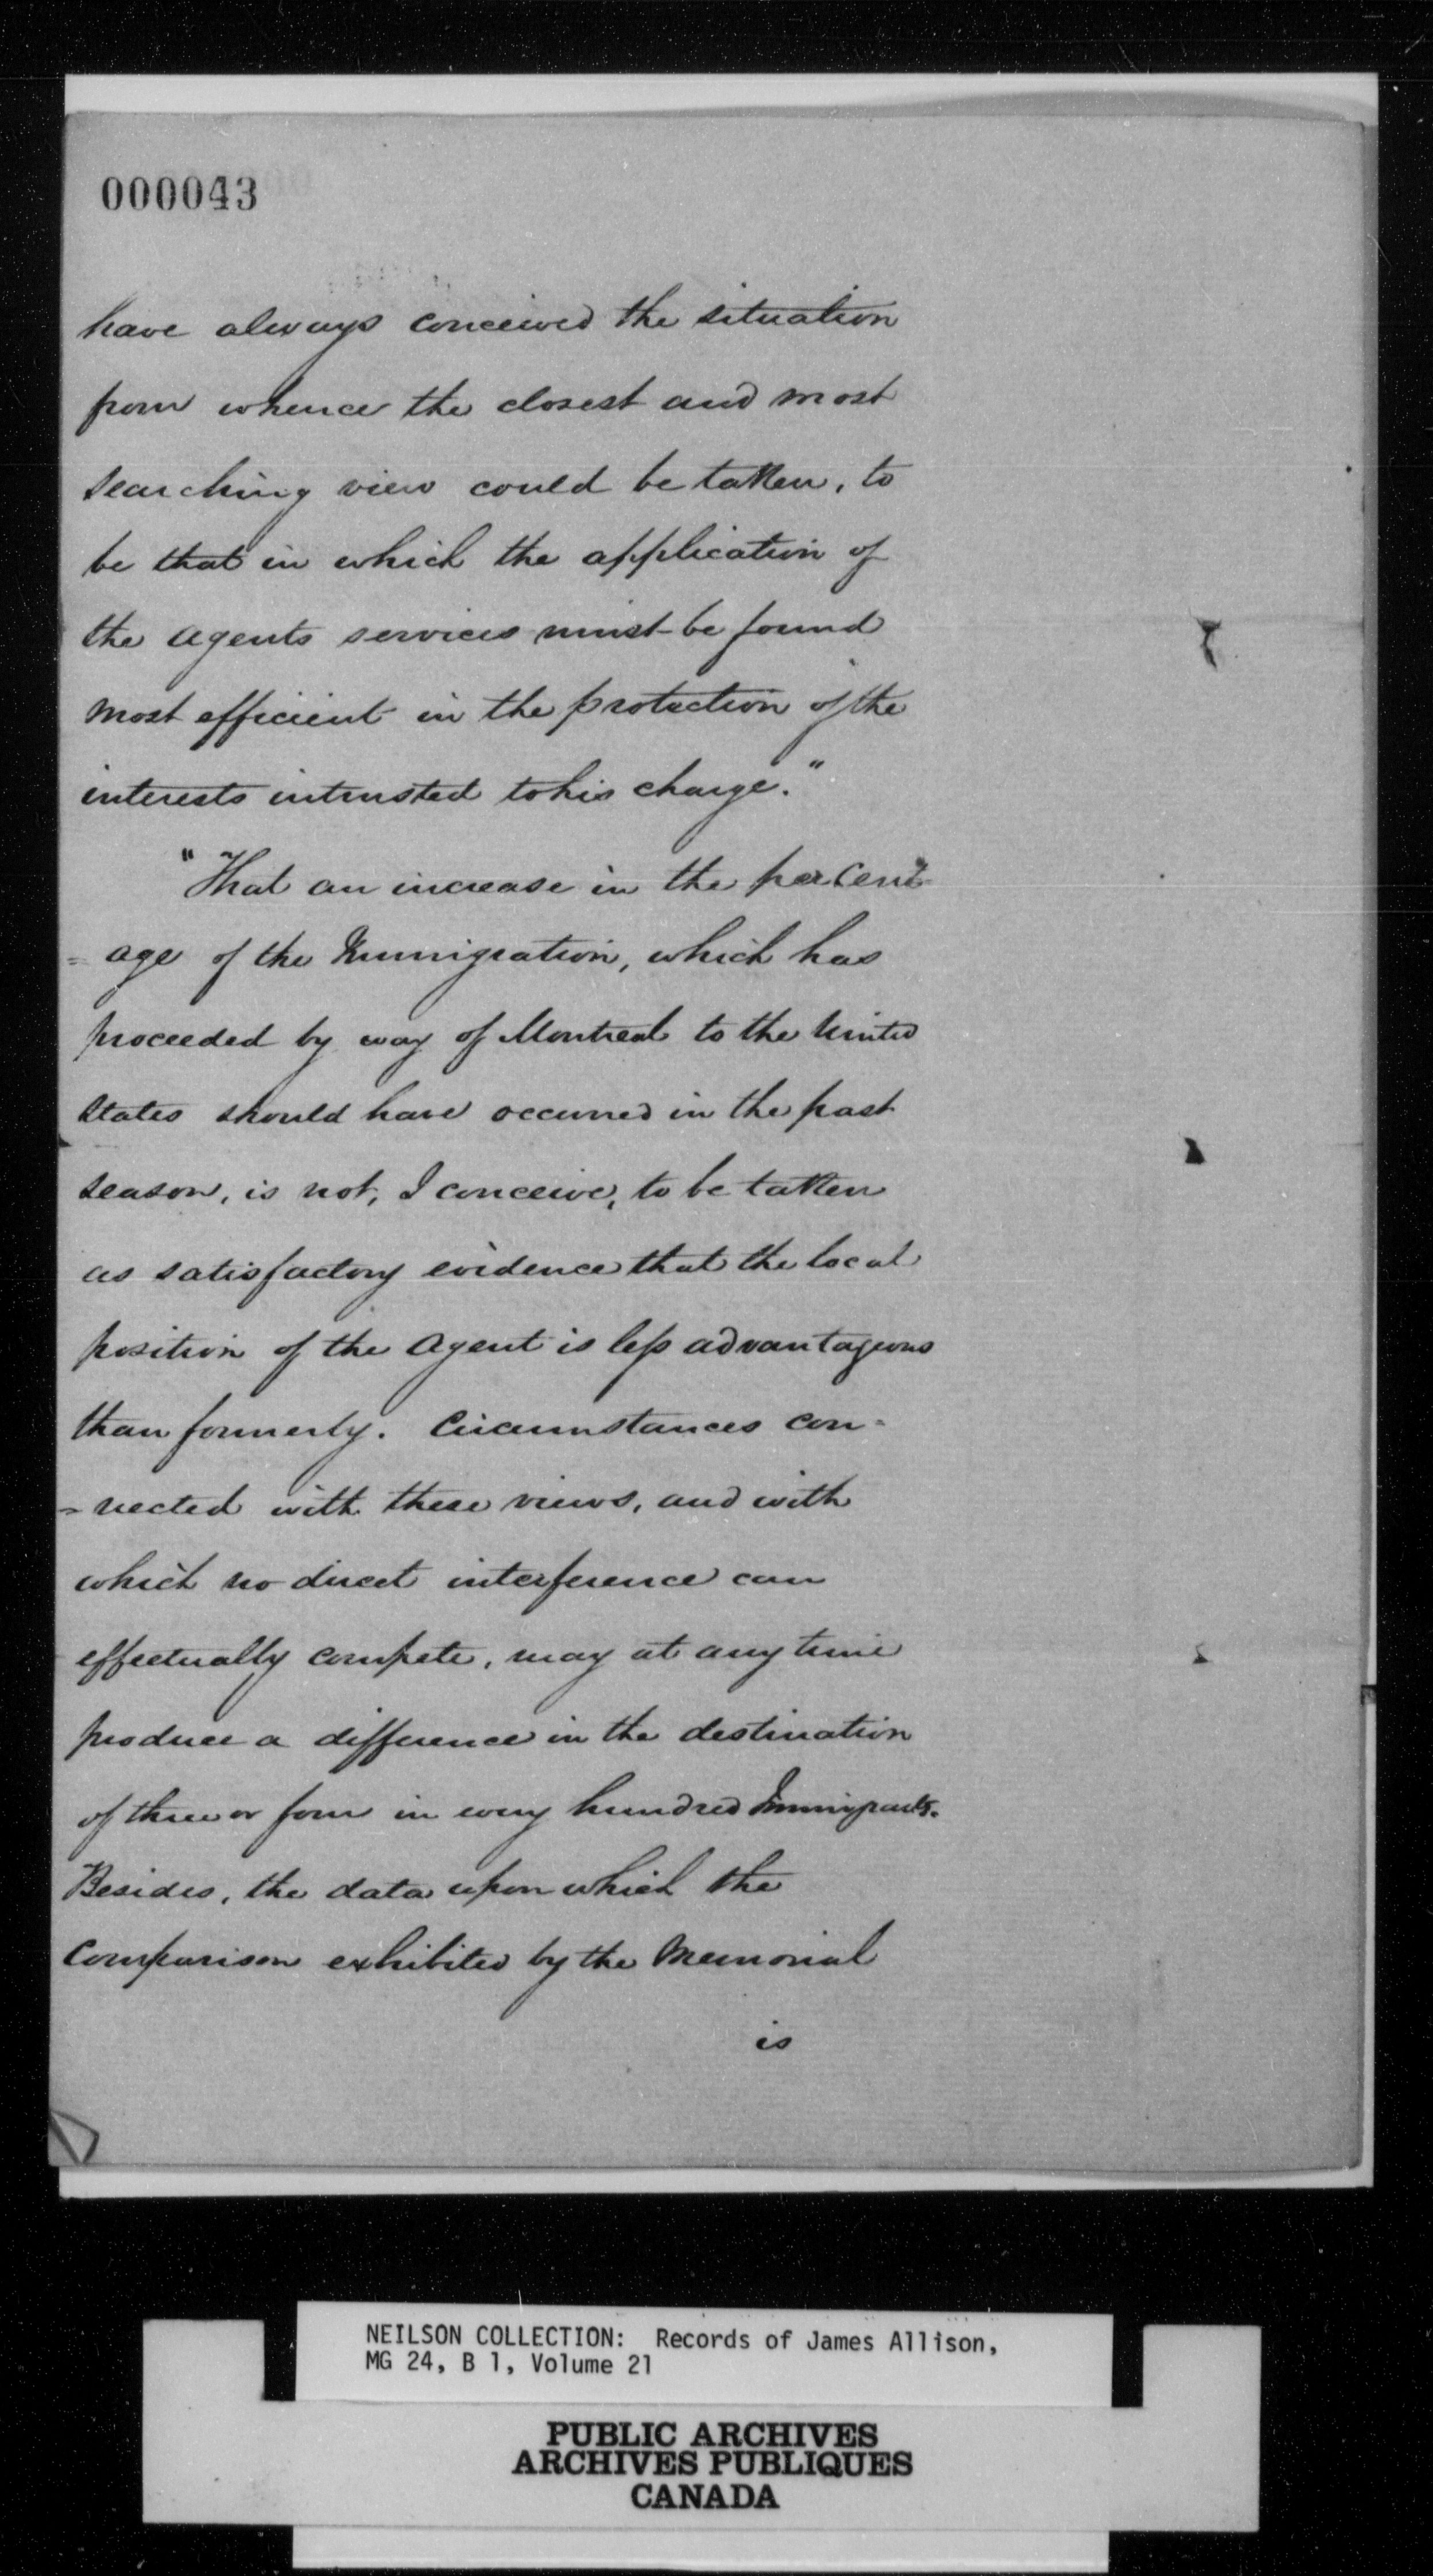 000043
have always conceived the situation
from whence the closest and most
searching view could be taken, to
be that in which the application of
the agents services must be found
most efficient in the protection of the
interests intrusted to his charge."
"That an increase in the per Cent-
=age of the Immigration, which has
proceeded by way of Montreal to the United
States should have occurred in the past
season, is not, I conceive, to be taken
as satisfactory evidence that the local
position of the Agent is less advantageous
than formerly. Circumstances con=
=nected with these views, and with
which no direct interference can
effectually compete, may at any time
produce a difference in the destination
of three or four in every hundred Immigrants.
Besides, the data upon which the
Comparison exhibited by the Memorial
is
NEILSON COLLECTION: Records of James Allison,
MG 24, B 1, Volume 21
PUBLIC ARCHIVES
ARCHIVES PUBLIQUES
CANADA